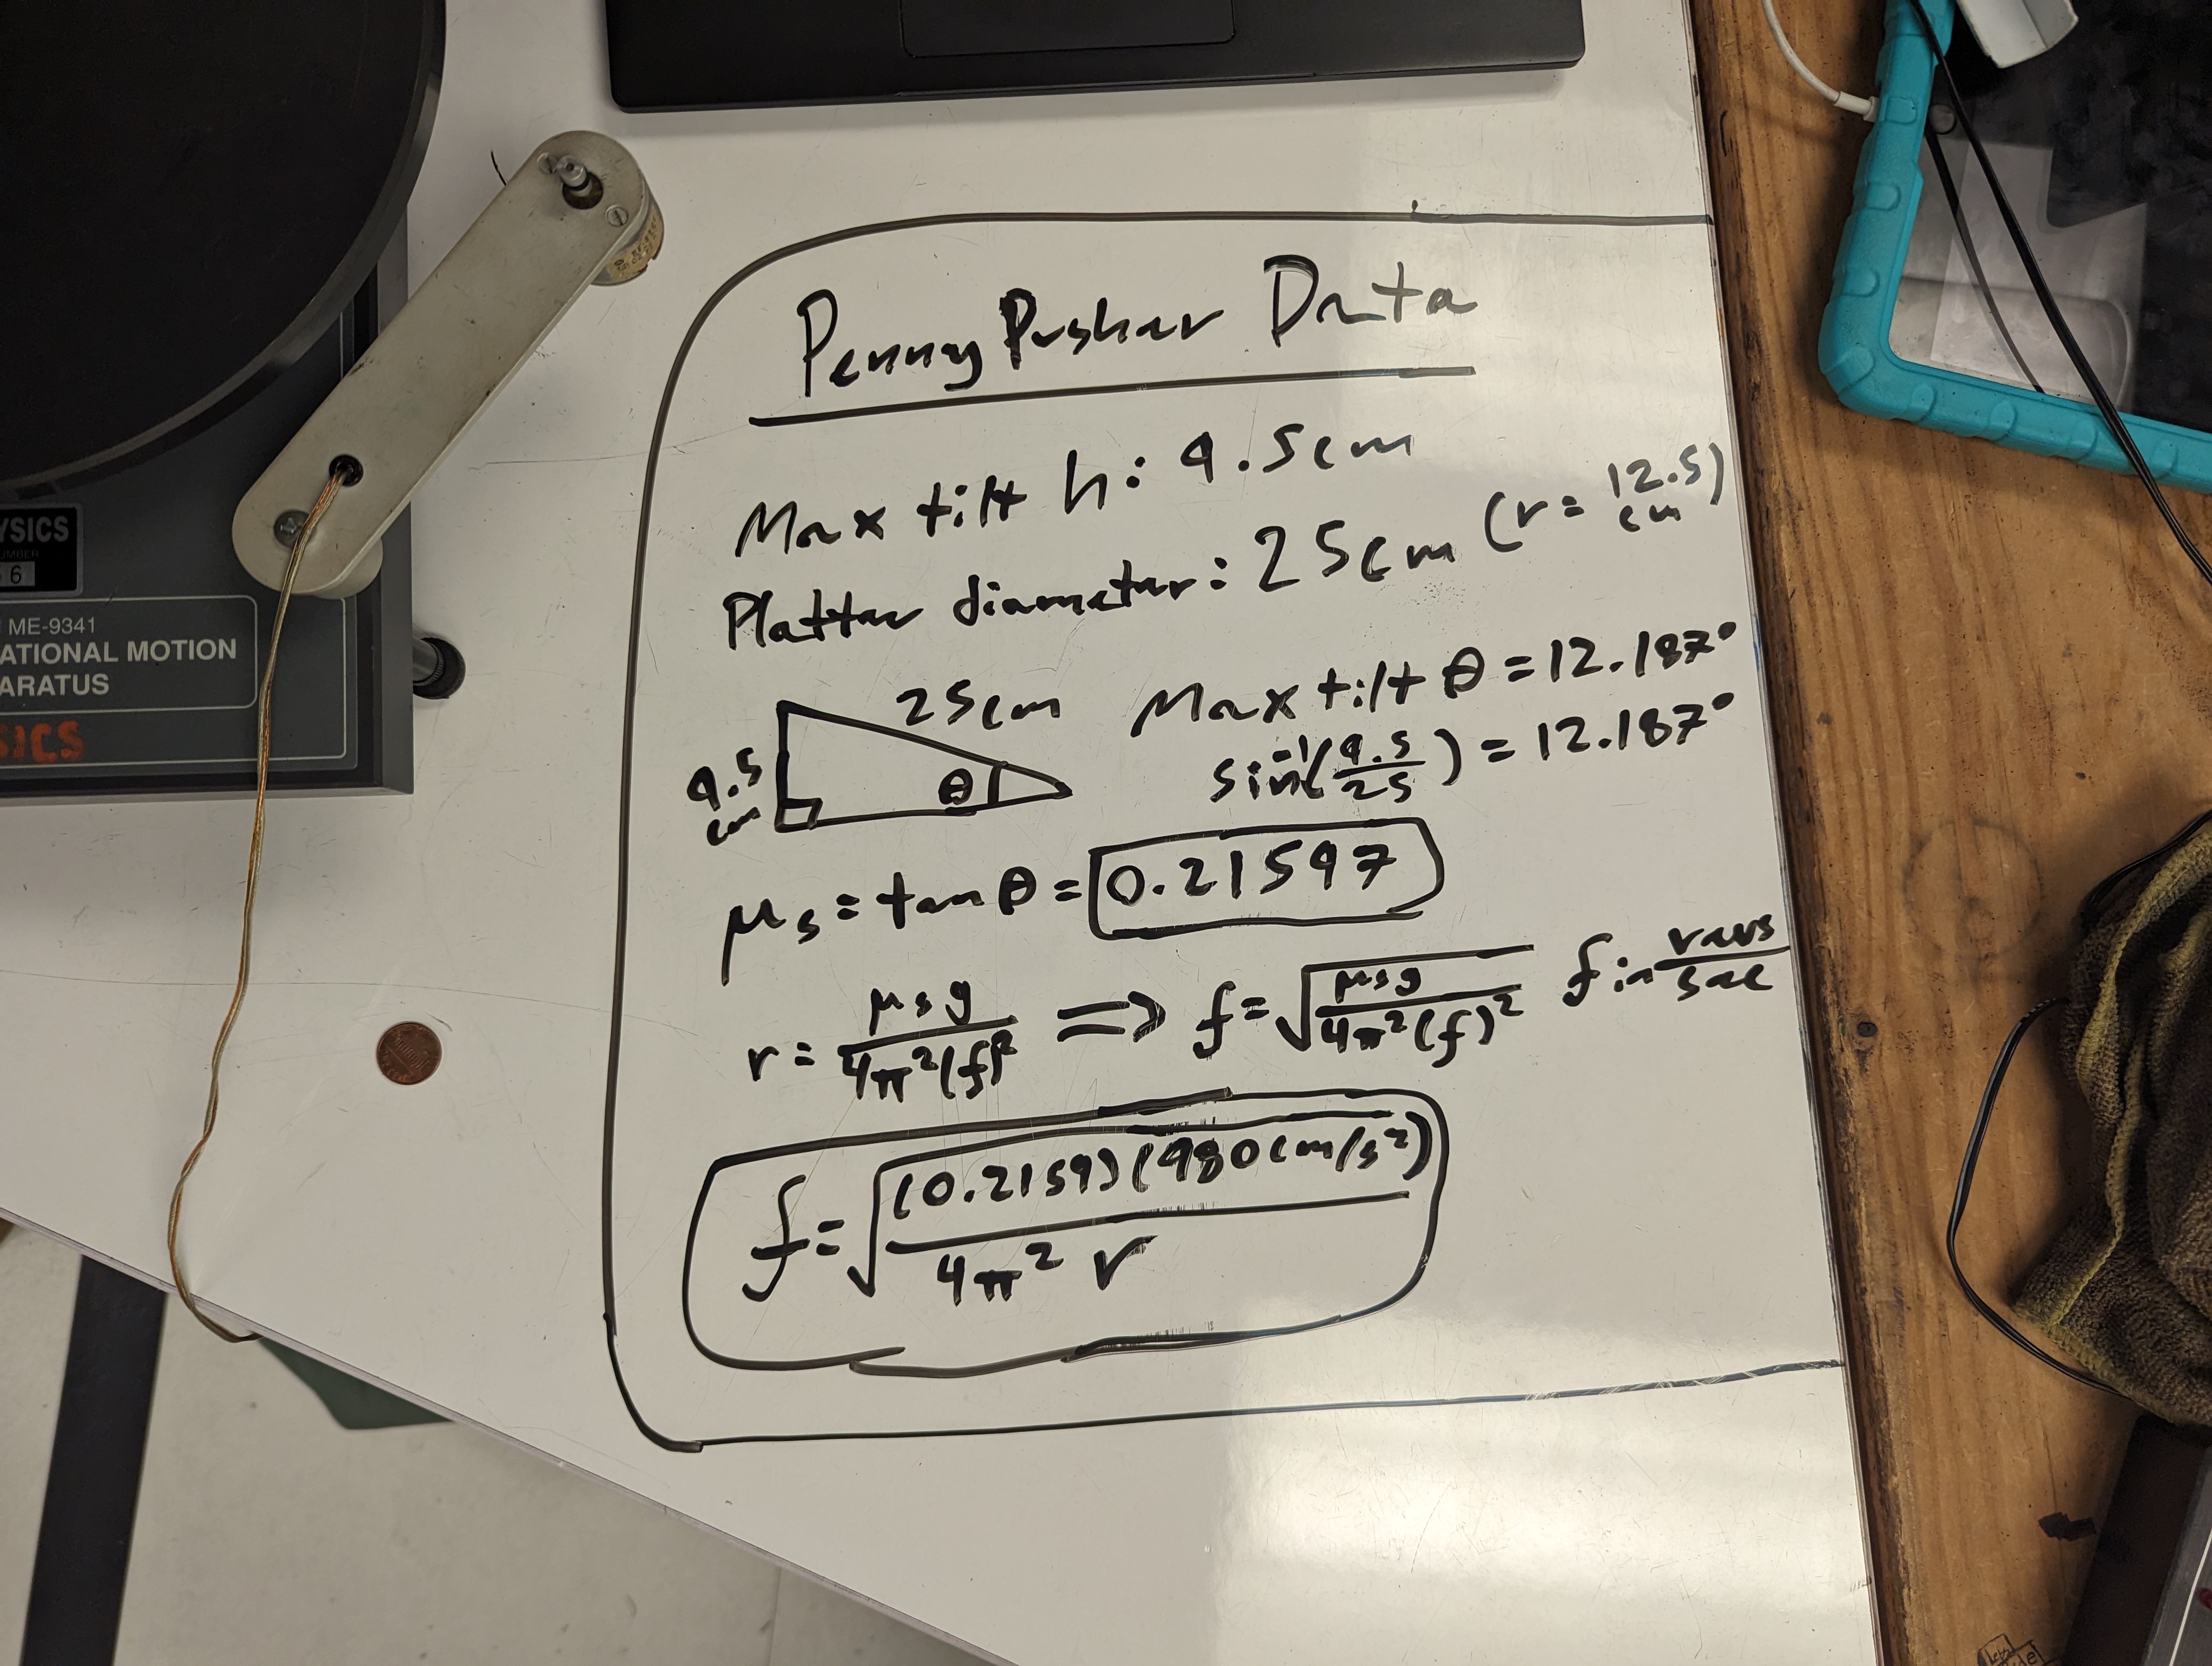 YSICS
UMBER
6
ME-9341
ATIONAL MOTION
ARATUS
SICS
Penny Pusher Data
Max tilt h: 9.5cm
Platter diameter: 25cm (r = 12.5 cm)
25cm
9.5 cm
θ
Max tilt θ = 12.187°
sin⁻¹(9.5/25) = 12.187°
μs = tan θ = 0.21597
r = μs g / 4π²(f)² ⇒ f = √(μs g / 4π²(f)²) f in revs/sec
f = √((0.2159)(980cm/s²) / 4π² r)